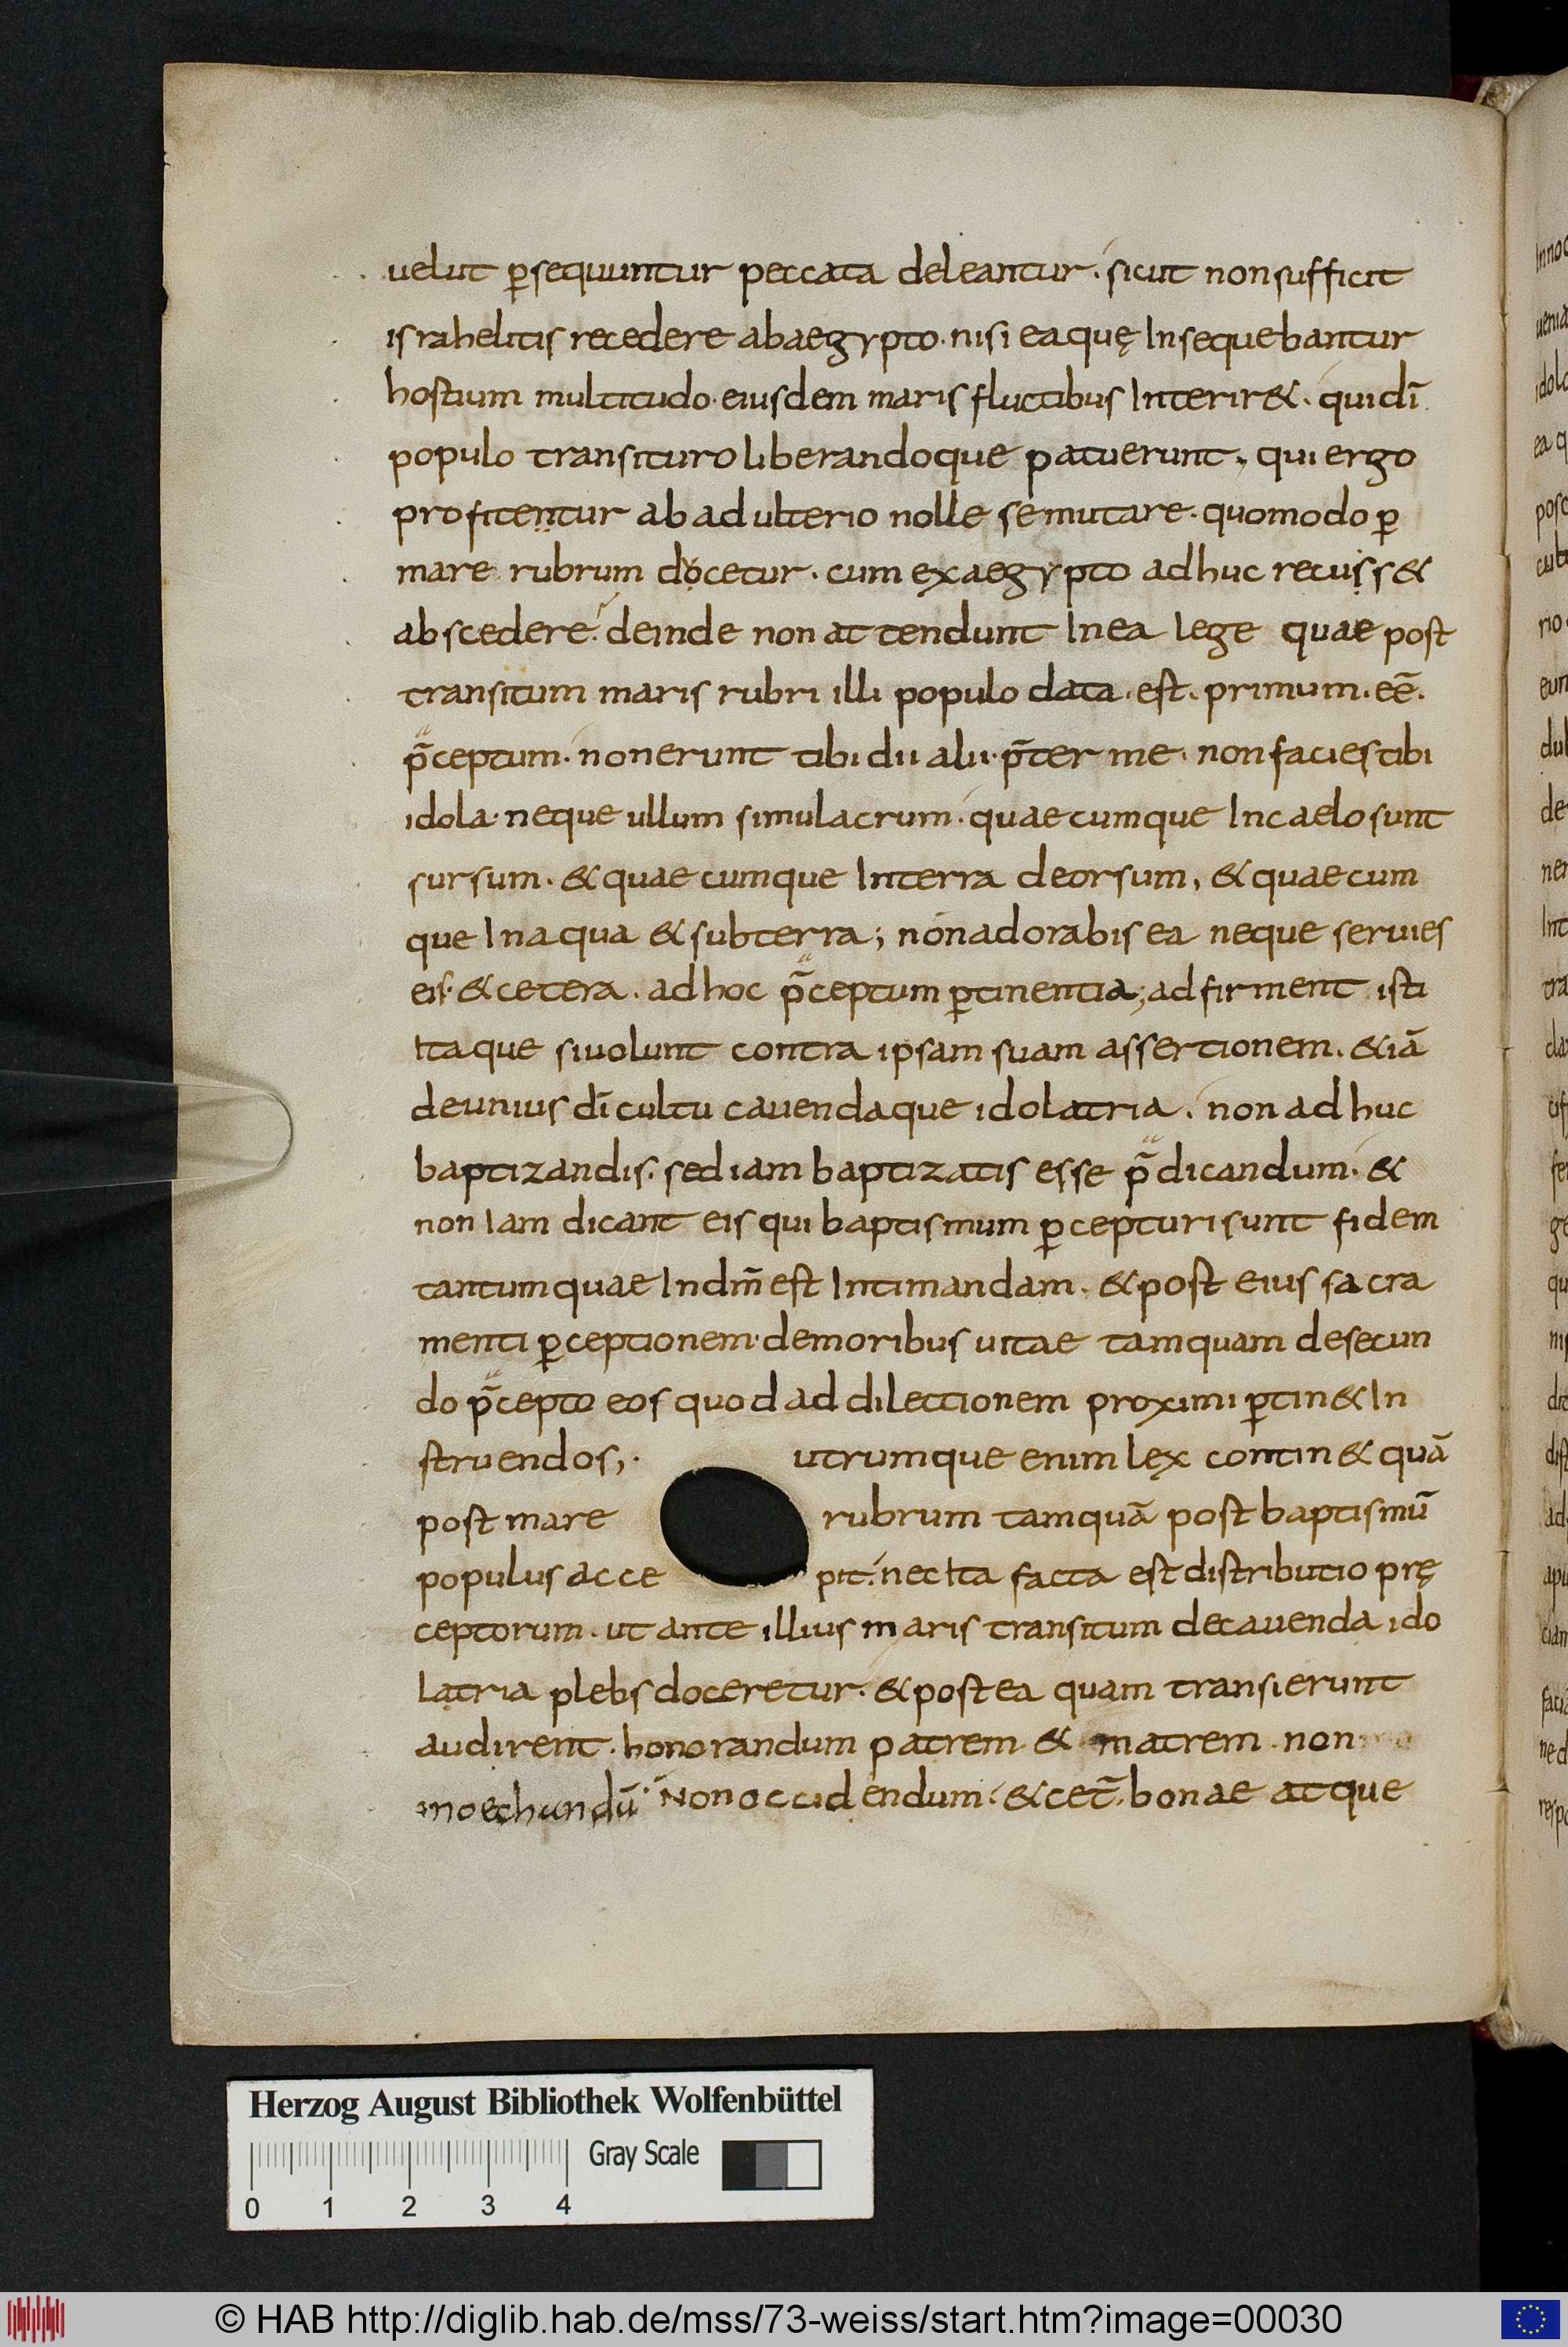 uelut p̱sequuntur peccata deleantur. sicut non sufficit
israhelitis recedere ab aegypto. nisi ea quę Insequebantur
hostium multitudo. eiusdem maris fluctibus Interir&. qui dī
populo transituro liberandoque patuerunt, qui ergo
profitentur ab adulterio nolle se mutare. quomodo p̱
mare rubrum docetur. cum ex aegypto adhuc recuss&
abscedere. deinde non attendunt In ea lege quae post
transitum maris rubri illi populo data. est. primum. eē.
p̄ceptum. non erunt tibi dii alii. p̄ter me. non facies tibi
idola. neque ullum simulacrum. quaecumque In caelo sunt
sursum. & quaecumque In terra deorsum, & quaecum
que In aqua & sub terra; non adorabis ea neque seruies
eis. & cetera. ad hoc p̄ceptum p̱tinentia; adfirment isti
Itaque si uolunt contra ipsam suam assertionem. &iā
de unius dī cultu cauendaque idolatria. non adhuc
baptizandis. sed iam baptizatis esse p̄dicandum. &
non Iam dicant eis qui baptismum p̱cepturi sunt fidem
tantum quae In dm̄ est Intimandam. & post eius sacra
menti p̱ceptionem. de moribus uitae tamquam de secun
do p̄cepto eos quod ad dilectionem proximi p̱tin& In
struendos,. utrumque enim lex contin& quā
post mare rubrum tamquā post baptismū
populus acce pit. nec Ita facta est distributio prę
ceptorum. ut ante illius maris transitum de cauenda ido
latria plebs doceretur. & postea quam transierunt
audirent. honorandum patrem & matrem. non
moechundū. Non occidendum. & cet̄. bonae atque
Herzog August Bibliothek Wolfenbüttel
Gray Scale
0 1 2 3 4
© HAB http://diglib.hab.de/mss/73-weiss/start.htm?image=00030